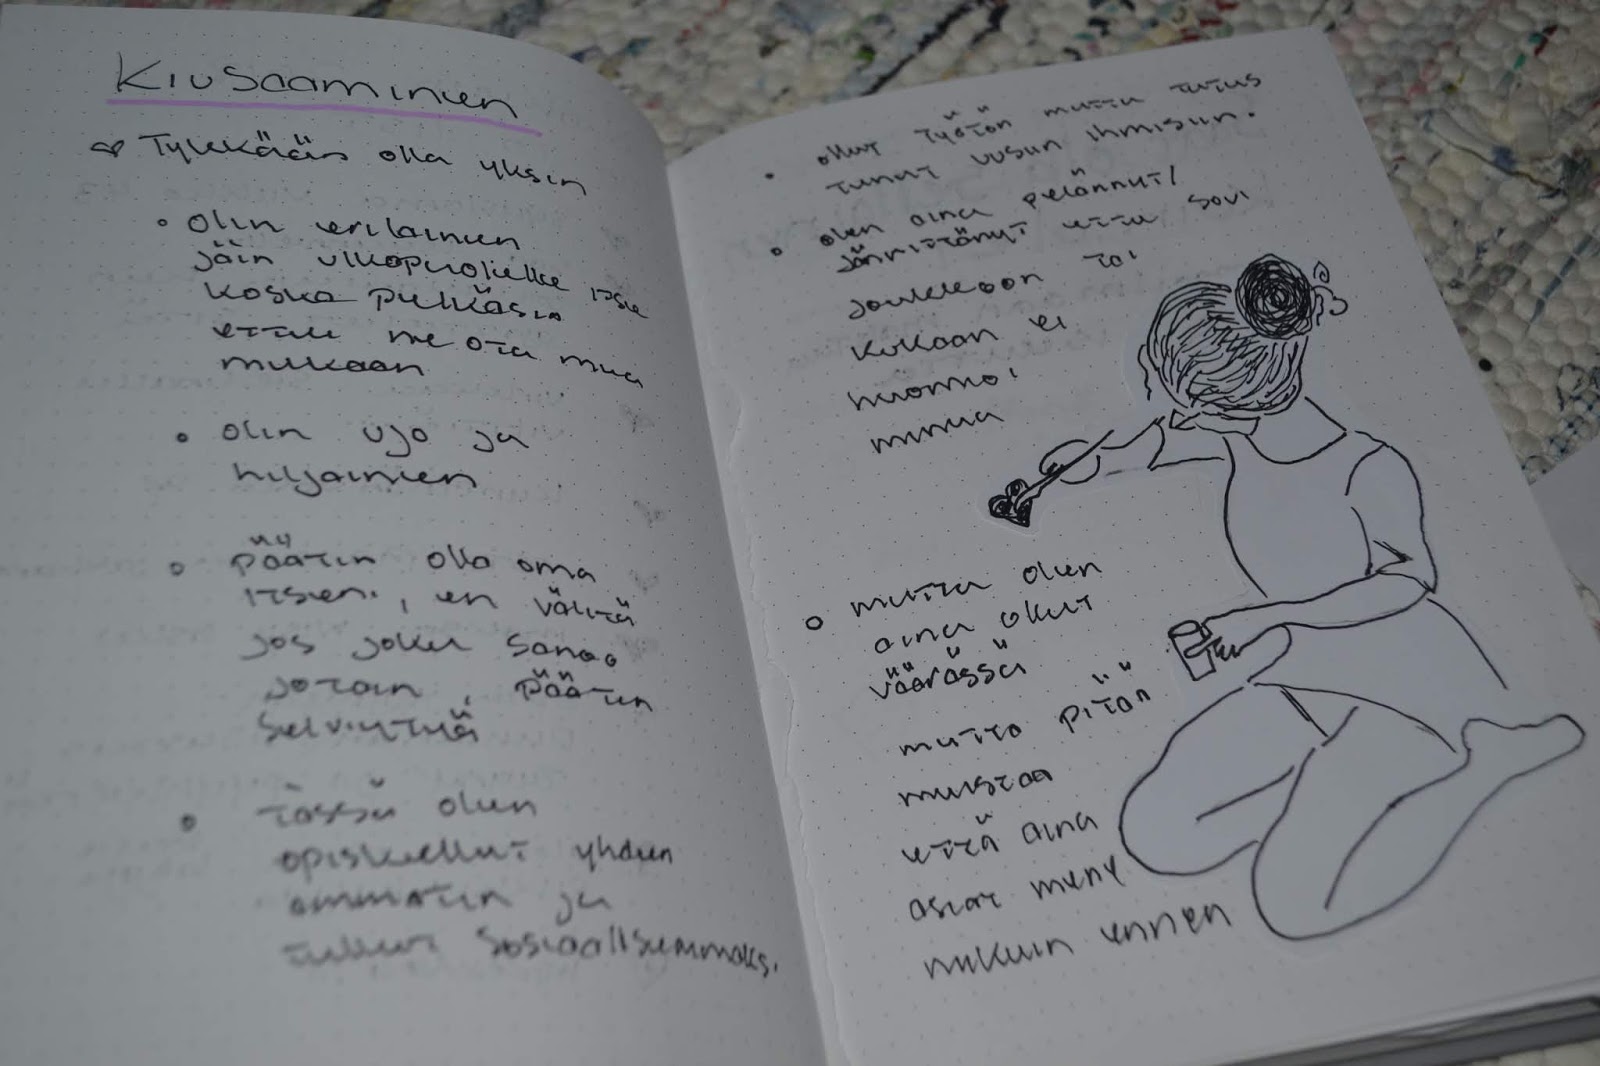 Kiusaaminen
Tykkään olla yksin
olin erilainen
jäin ulkopuolelle itse
koska pelkäsin
ettei me ota mua
mukaan
olin ujo ja
hiljainen
päätin olla oma
itseni, en välitä
jos joku sanoo
jotain, päätin
selviytyä
tässä olen
opiskellut yhden
ammatin ja
tullut sosiaalisemmaks.
ollut työtön mutta tutus
tunut uusiin ihmisiin.
olen aina pelännyt/
jännittänyt etten sovi
joukkoon tai
kukaan ei
huomioi
minua
mutta olen
aina ollut
väärässä
mutta pitää
muistaa
että aina
asiat meny
niinkuin ennen